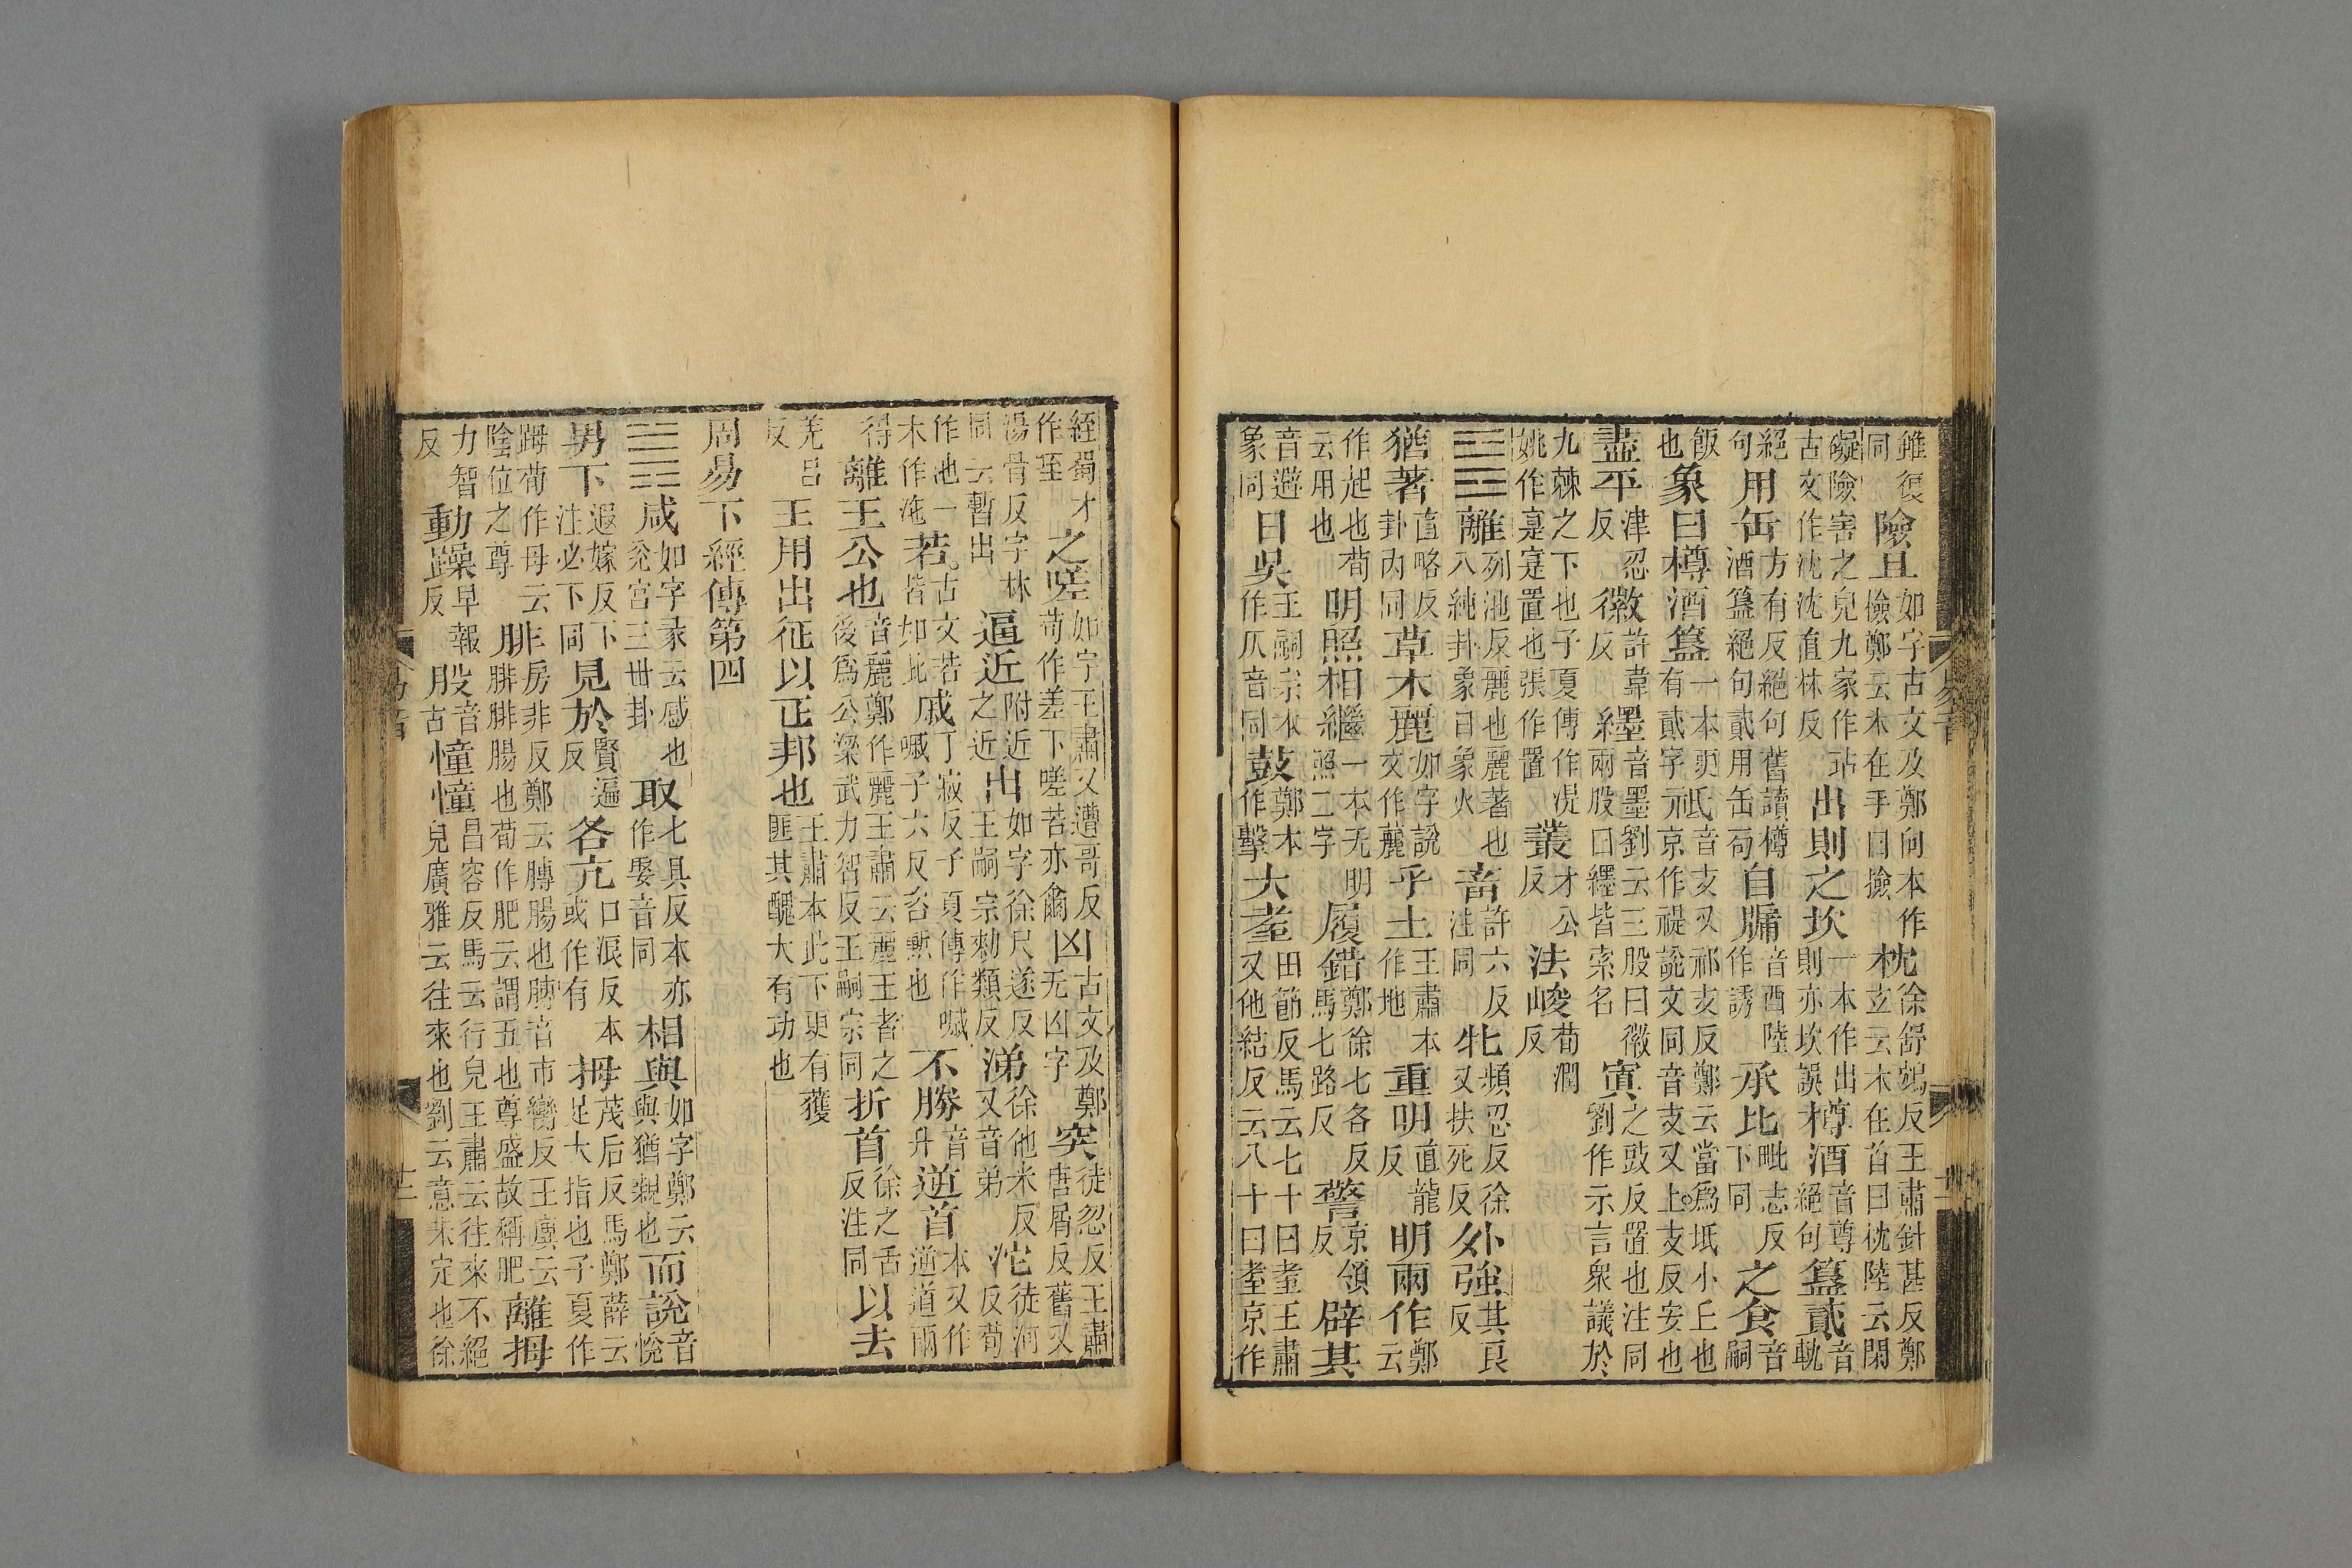 雖復同險且如字古文及鄭向本作檢鄭云木在手曰檢枕徐舒鴆反王肅針甚反鄭玄云木在首曰枕陸云閑
礙險害之皃九家作玷古文作沈沈直林反出則之坎一本作出則亦坎誤樽酒音尊絕句簋貳音軌
絕句用缶方有反絕句舊讀樽酒簋絕句貳用缶句自牖音酉陸作誘承比毗志反下同之食音嗣
飯也象曰樽酒簋一本更有貳字祗音支又祁支反鄭云當為坻小丘也京作禔說文同音支又上支反安也
盡平津忍反徽許韋反纆音墨劉云三股曰徽兩股曰纆皆索名寘之豉反置也注同劉作示言眾議於
九棘之下也子夏傳作湜姚作寔寔置也張作置叢才公反法峻荀潤反
䷝離列池反麗也麗著也八純卦象日象火畜許六反注同牝頻忍反徐又扶死反外強其良反
猶著直略反卦內同草木麗如字說文作麗乎土王肅本作地重明直龍反明兩作鄭云
作起也荀云用也明照相繼一本无明照二字履錯鄭徐七各反馬七路反警京領反辟其
音避象同日昃王嗣宗本作仄音同鼓鄭本作擊大耋田節反馬云七十曰耋王肅又他結反云八十曰耋京作
絰蜀才作至之嗟如字王肅又遭哥反荀作差下嗟若亦爾凶古文及鄭无凶字突徒忽反王肅唐屑反舊又
湯骨反字林同云暫出逼近附近之近出如字徐尺遂反王嗣宗勑類反涕徐他米反又音弟沱徒河反荀
作池一本作沲若古文若皆如此戚丁寂反子夏傳作嘁嘁子六反咨慙也不勝音升逆首本又作逆道兩
得離王公也音麗鄭作麗王肅云麗王者之後為公梁武力智反王嗣宗同折首徐之舌反注同以去
羌呂反王用出征以正邦也王肅本此下更有獲匪其醜大有功也
周易下經傳第四
䷞咸如字彖云感也兌宮三世卦取七具反本亦作娶音同相與如字鄭云與猶親也而說音悅
男下遐嫁反下注必下同見於賢遍反各亢口浪反本或作有拇茂后反馬鄭薛云足大指也子夏作
踇荀作母云陰位之尊腓房非反鄭云膊腸也膊音市臠反王廙云腓腓腸也荀作肥云謂五也尊盛故稱肥離拇
力智反動躁早報反股音古憧憧昌容反馬云行皃王肅云往來不絕皃廣雅云往來也劉云意未定也徐
易音